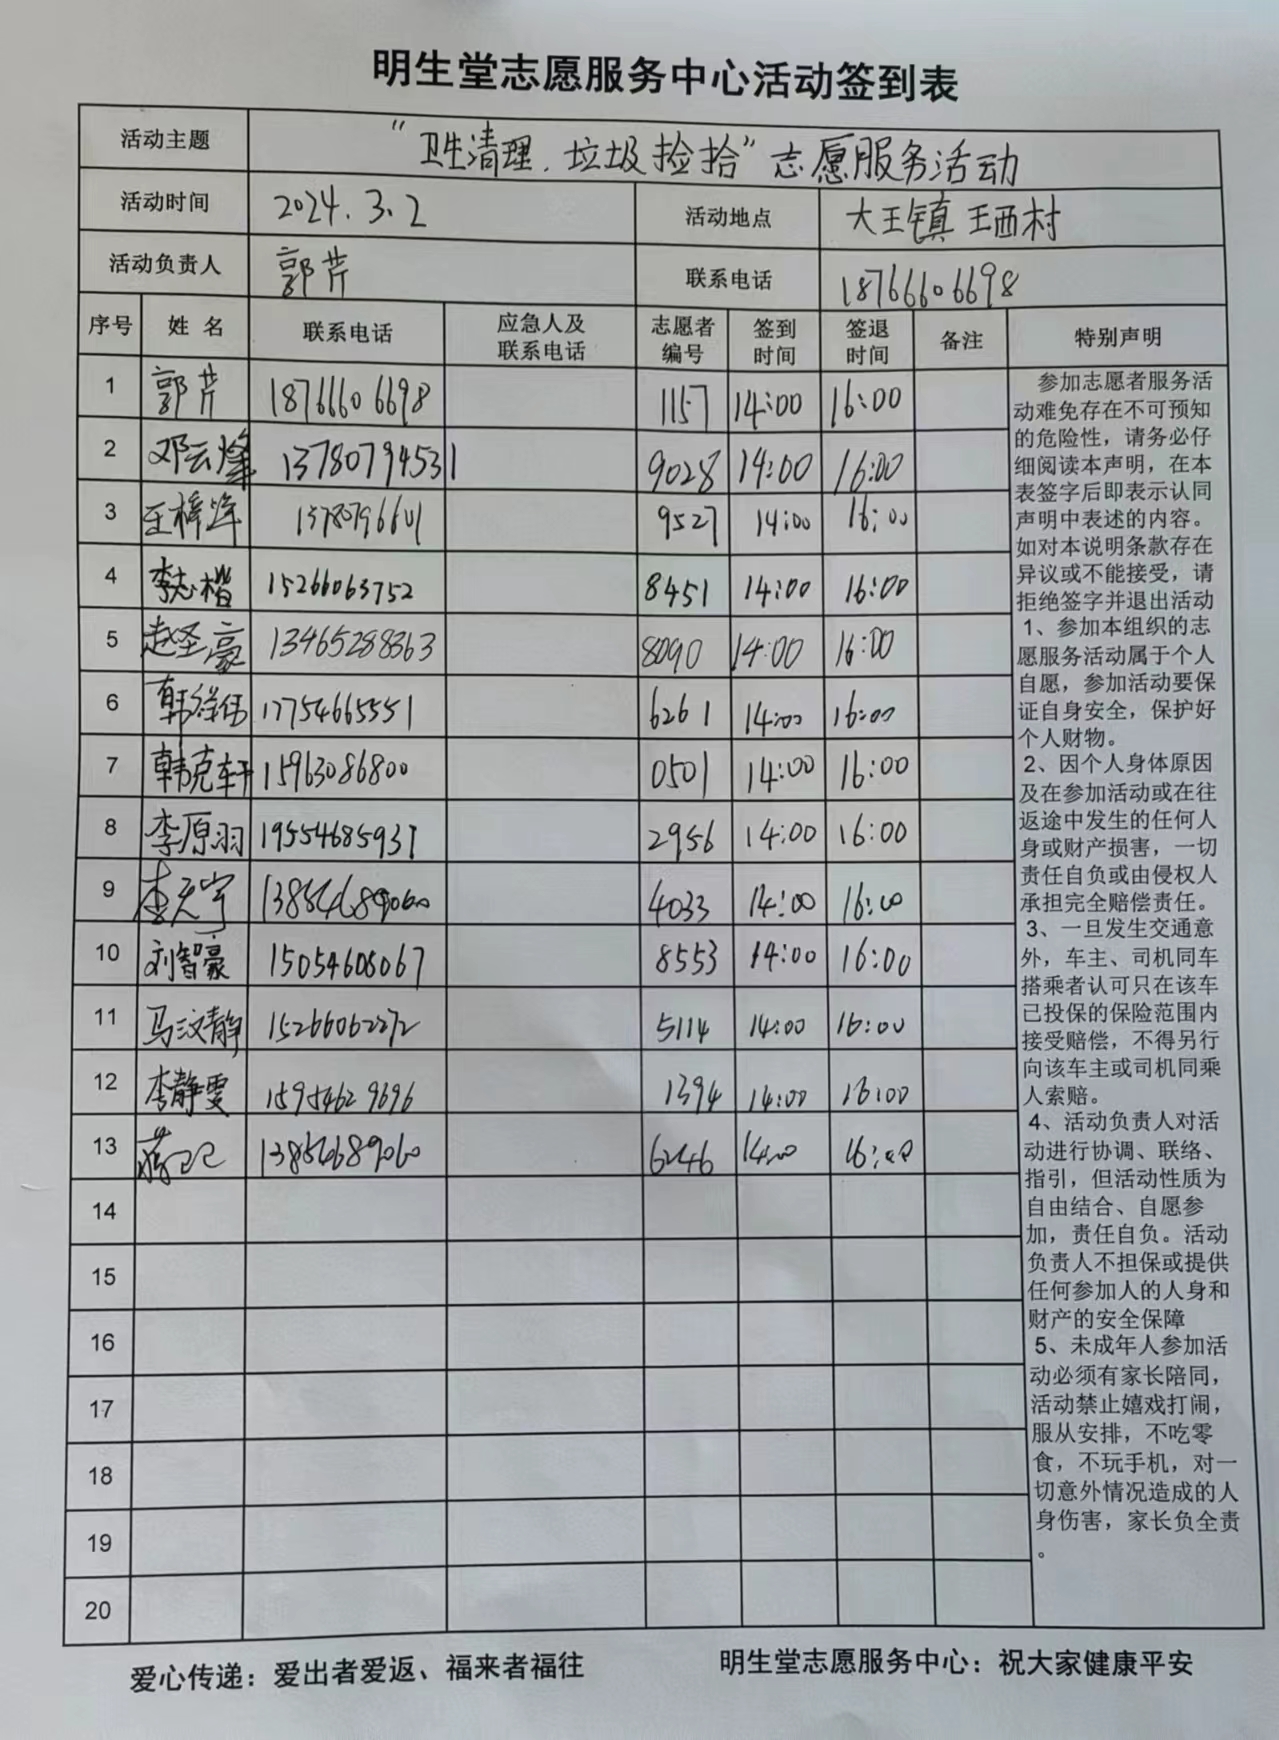 明生堂志愿服务中心活动签到表
活动主题 “卫生清理、垃圾捡拾”志愿服务活动
活动时间 2024.3.2 活动地点 大王镇王西村
活动负责人 郭芹 联系电话 18766606698
序号 姓名 联系电话 应急人及联系电话 志愿者编号 签到时间 签退时间 备注 特别声明
1 郭芹 18766606698 1157 14:00 16:00
2 邓云烽 13780794531 9028 14:00 16:00
3 9527 14:00 16:00
4 李志楷 15266063752 8451 14:00 16:00
5 赵圣豪 13465288363 8090 14:00 16:00
6 17754665551 6261 14:00 16:00
7 韩克轩 15963086800 0501 14:00 16:00
8 李原羽 19554685937 2956 14:00 16:00
9 李天宇 4033 14:00 16:00
10 刘智豪 15054608067 8553 14:00 16:00
11 马汶静 15266062272 5114 14:00 16:00
12 李静雯 15954629696 1394 14:00 16:00
13 6246 14:00 16:00
14
15
16
17
18
19
20
参加志愿者服务活
动难免存在不可预知
的危险性，请务必仔
细阅读本声明，在本
表签字后即表示认同
声明中表述的内容。
如对本说明条款存在
异议或不能接受，请
拒绝签字并退出活动
1、参加本组织的志
愿服务活动属于个人
自愿，参加活动要保
证自身安全，保护好
个人财物。
2、因个人身体原因
及在参加活动或在往
返途中发生的任何人
身或财产损害，一切
责任自负或由侵权人
承担完全赔偿责任。
3、一旦发生交通意
外，车主、司机同车
搭乘者认可只在该车
已投保的保险范围内
接受赔偿，不得另行
向该车主或司机同乘
人索赔。
4、活动负责人对活
动进行协调、联络、
指引，但活动性质为
自由结合、自愿参
加，责任自负。活动
负责人不担保或提供
任何参加人的人身和
财产的安全保障
5、未成年人参加活
动必须有家长陪同，
活动禁止嬉戏打闹，
服从安排，不吃零
食，不玩手机，对一
切意外情况造成的人
身伤害，家长负全责
。
爱心传递：爱出者爱返、福来者福往 明生堂志愿服务中心：祝大家健康平安